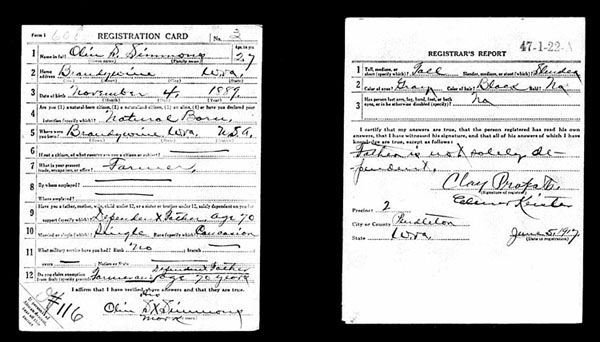 Form 1 REGISTRATION CARD No. 2
Age, in yrs.
1 Name in full Olin S. Simmons 27
(Given name) (Family name)
2 Home address Brandywine W.Va.
(No.) (Street) (City) (State)
3 Date of birth November 4, 1889
(Month) (Day) (Year)
4 Are you (1) a natural-born citizen, (2) a naturalized citizen, (3) an alien, (4) or have you declared your
intention (specify which)? Natural Born
5 Where were you born? Brandywine W.Va. U.S.A.
(Town) (State) (Nation)
6 If not a citizen, of what country are you a citizen or subject?
7 What is your present trade, occupation, or office? Farmer
8 By whom employed?
Where employed?
9 Have you a father, mother, wife, child under 12, or a sister or brother under 12, solely dependent on you for
support (specify which)? Dependent Father, age 70
10 Married or single (which)? Single Race (specify which)? Caucasion
11 What military service have you had? Rank No ; branch
years ; Nation or State
12 Do you claim exemption from draft (specify grounds)? Farmer and Dependent Father age 70 years
I affirm that I have verified above answers and that they are true.
his
Olin S X Simmons
mark
#116
REGISTRAR'S REPORT 47-1-22-A
1 Tall, medium, or short (specify which)? Tall Slender, medium, or stout (which)? Slender
2 Color of eyes? Gray Color of hair? Black Bald? No
3 Has person lost arm, leg, hand, foot, or both eyes, or is he otherwise disabled (specify)? No
I certify that my answers are true, that the person registered has read his own
answers, that I have witnessed his signature, and that all of his answers of which I have
knowledge are true, except as follows:
Father is not solely de-
pendent.
Clay Propst
(Signature of registrar)
Precinct 2
City or County Pendleton
State W.Va. June 5, 1917
(Date of registration)